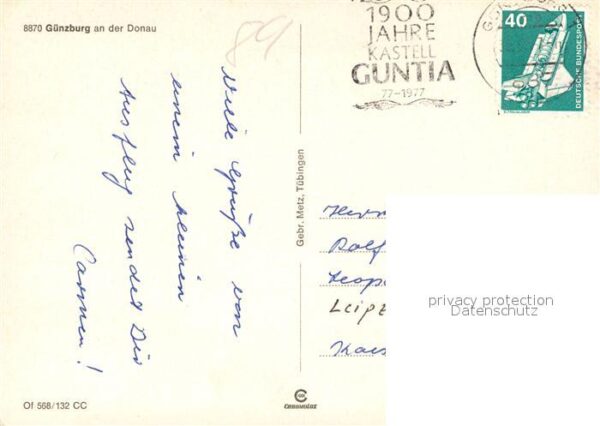 8870 Günzburg an der Donau
89
1900
JAHRE
KASTELL
GUNTIA
77-1977
40
DEUTSCHE BUNDESPOST
Viele Grüße von
einem kleinen
Ausflug sendet Dir
Carmen!
Gebr. Metz, Tübingen
Herrn
Rolf
Leop
Leipz
privacy protection
Datenschutz
Of 568/132 CC
CHROMOLUX